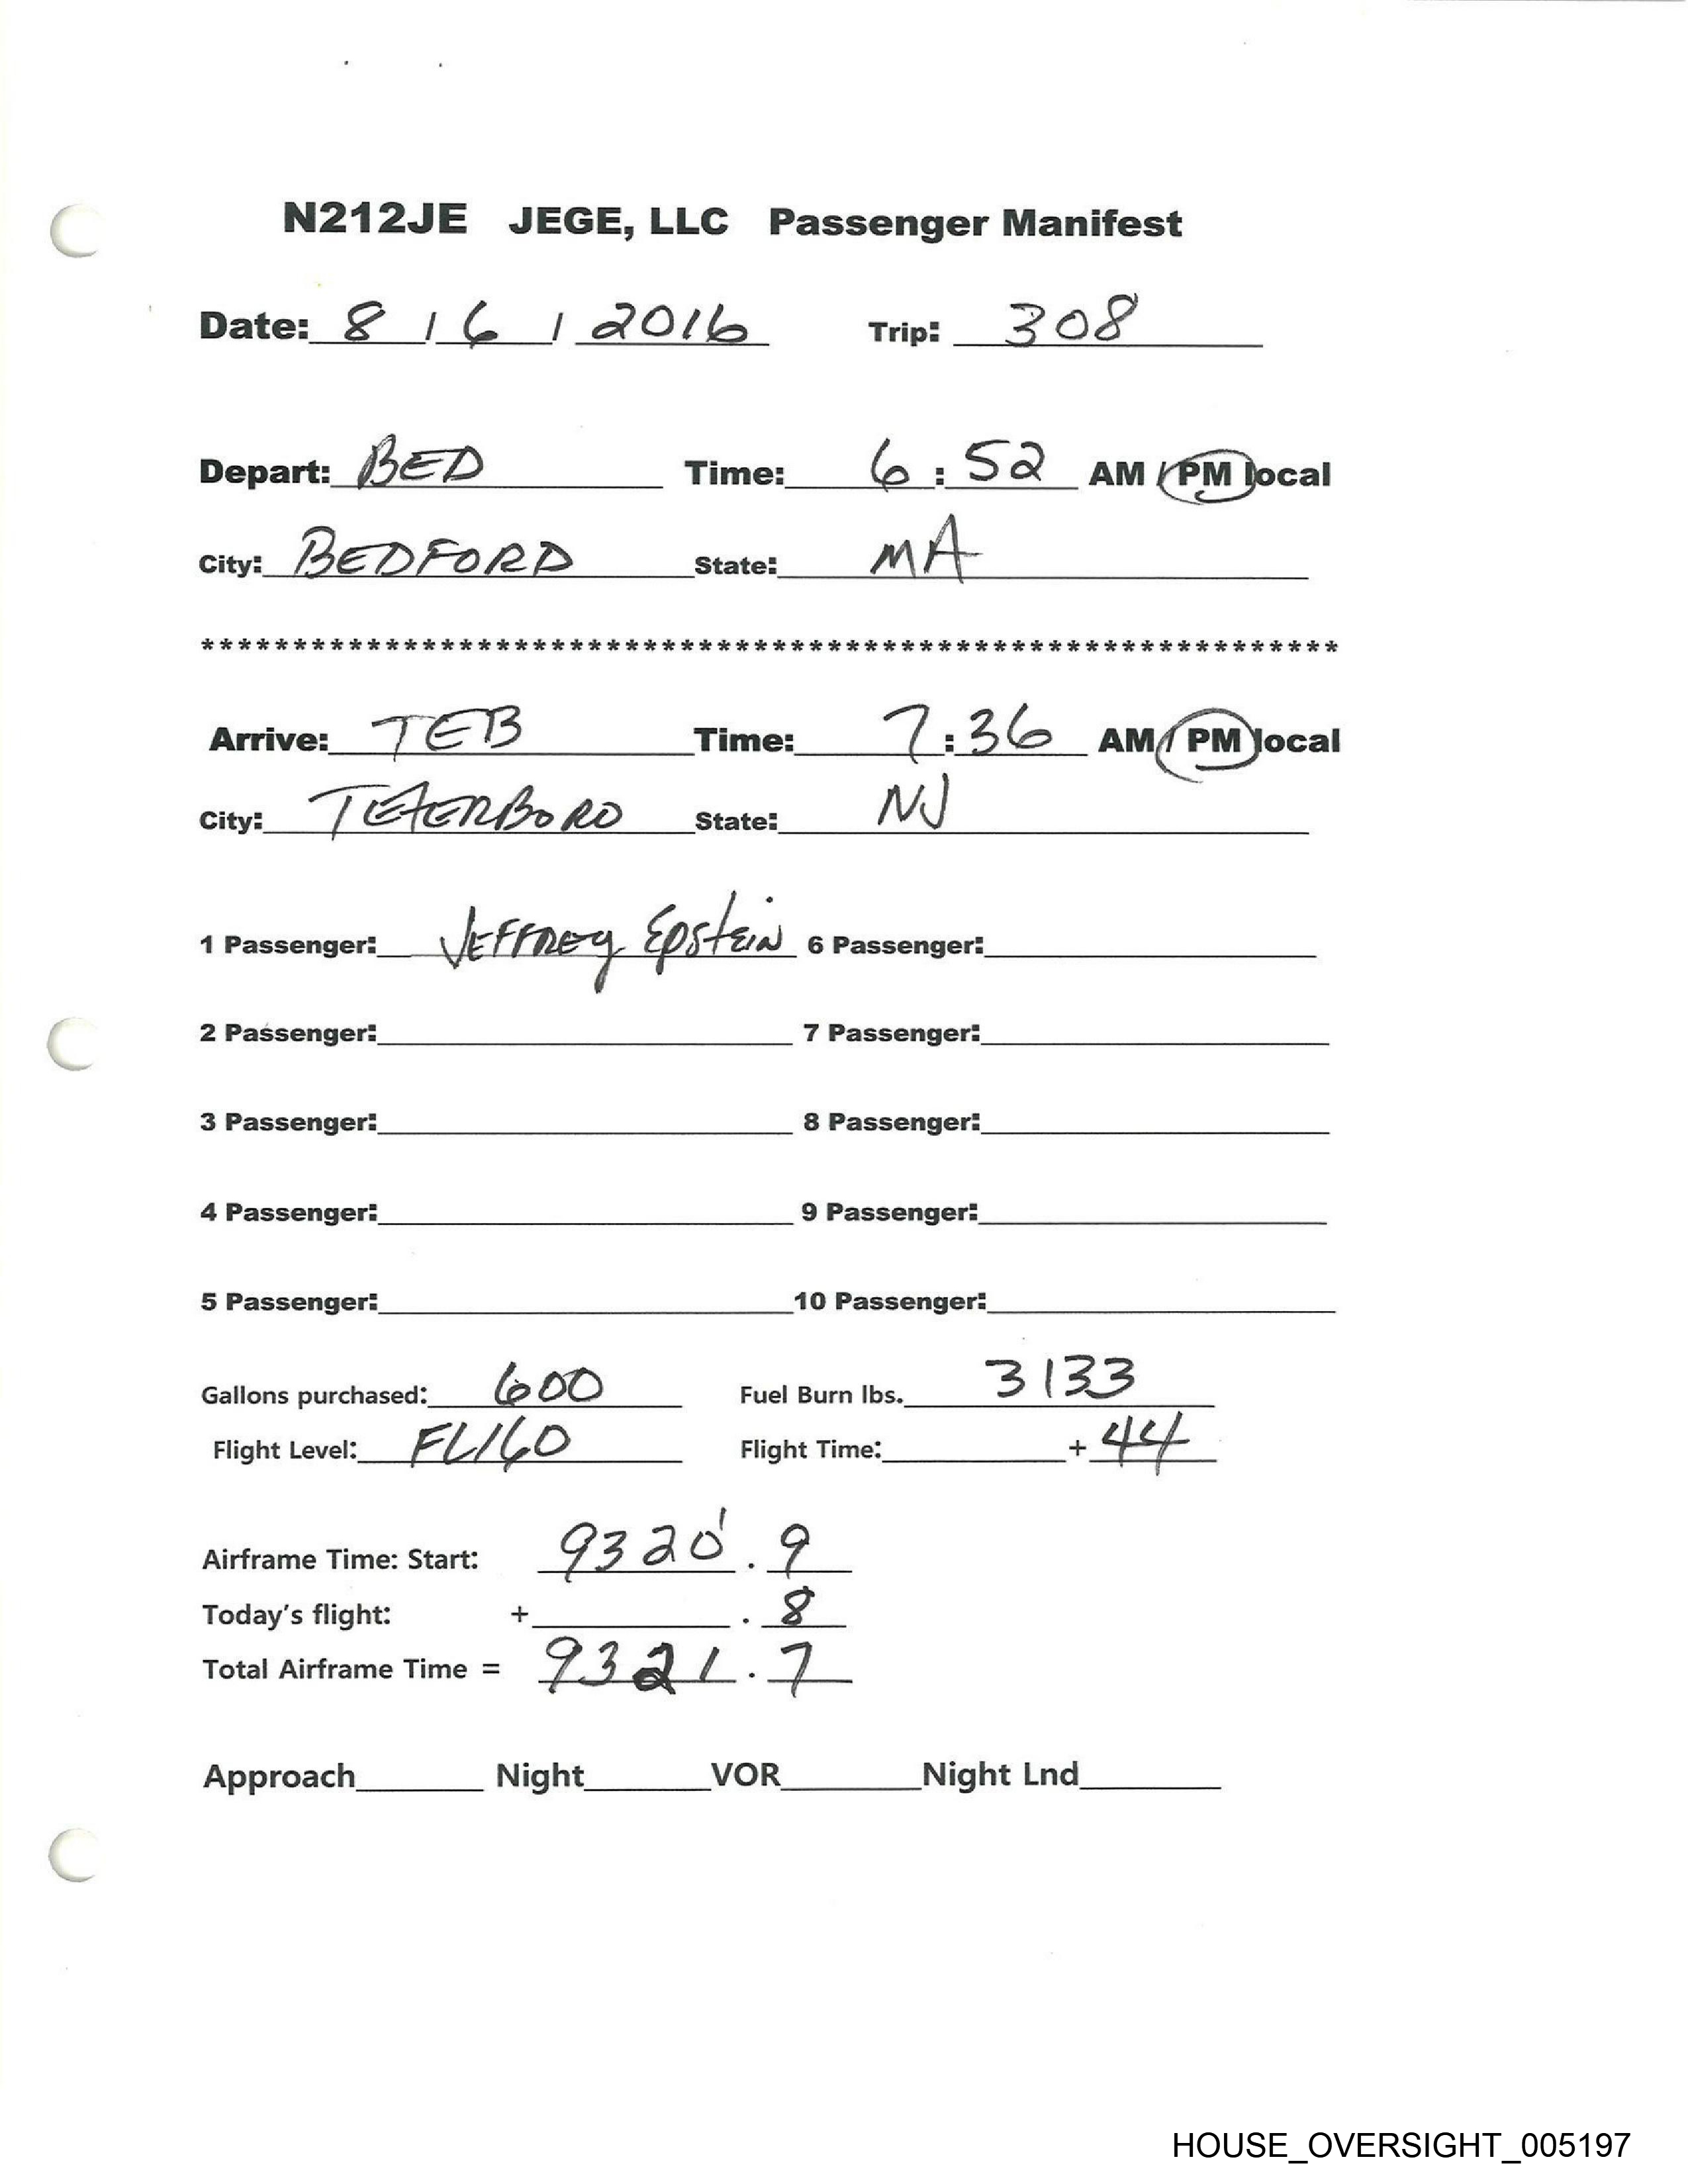 N212JE JEGE, LLC Passenger Manifest
Date: 8 / 6 / 2016 Trip: 308
Depart: BED Time: 6 : 52 AM / PM local
City: BEDFORD State: MA
*************************************************************
Arrive: TEB Time: 7 : 36 AM / PM local
City: TETERBORO State: NJ
1 Passenger: JEFFREY EpstEIN 6 Passenger:
2 Passenger: 7 Passenger:
3 Passenger: 8 Passenger:
4 Passenger: 9 Passenger:
5 Passenger: 10 Passenger:
Gallons purchased: 600 Fuel Burn lbs. 3133
Flight Level: FL160 Flight Time: + 44
Airframe Time: Start: 9320 . 9
Today's flight: + . 8
Total Airframe Time = 9321 . 7
Approach Night VOR Night Lnd
HOUSE_OVERSIGHT_005197